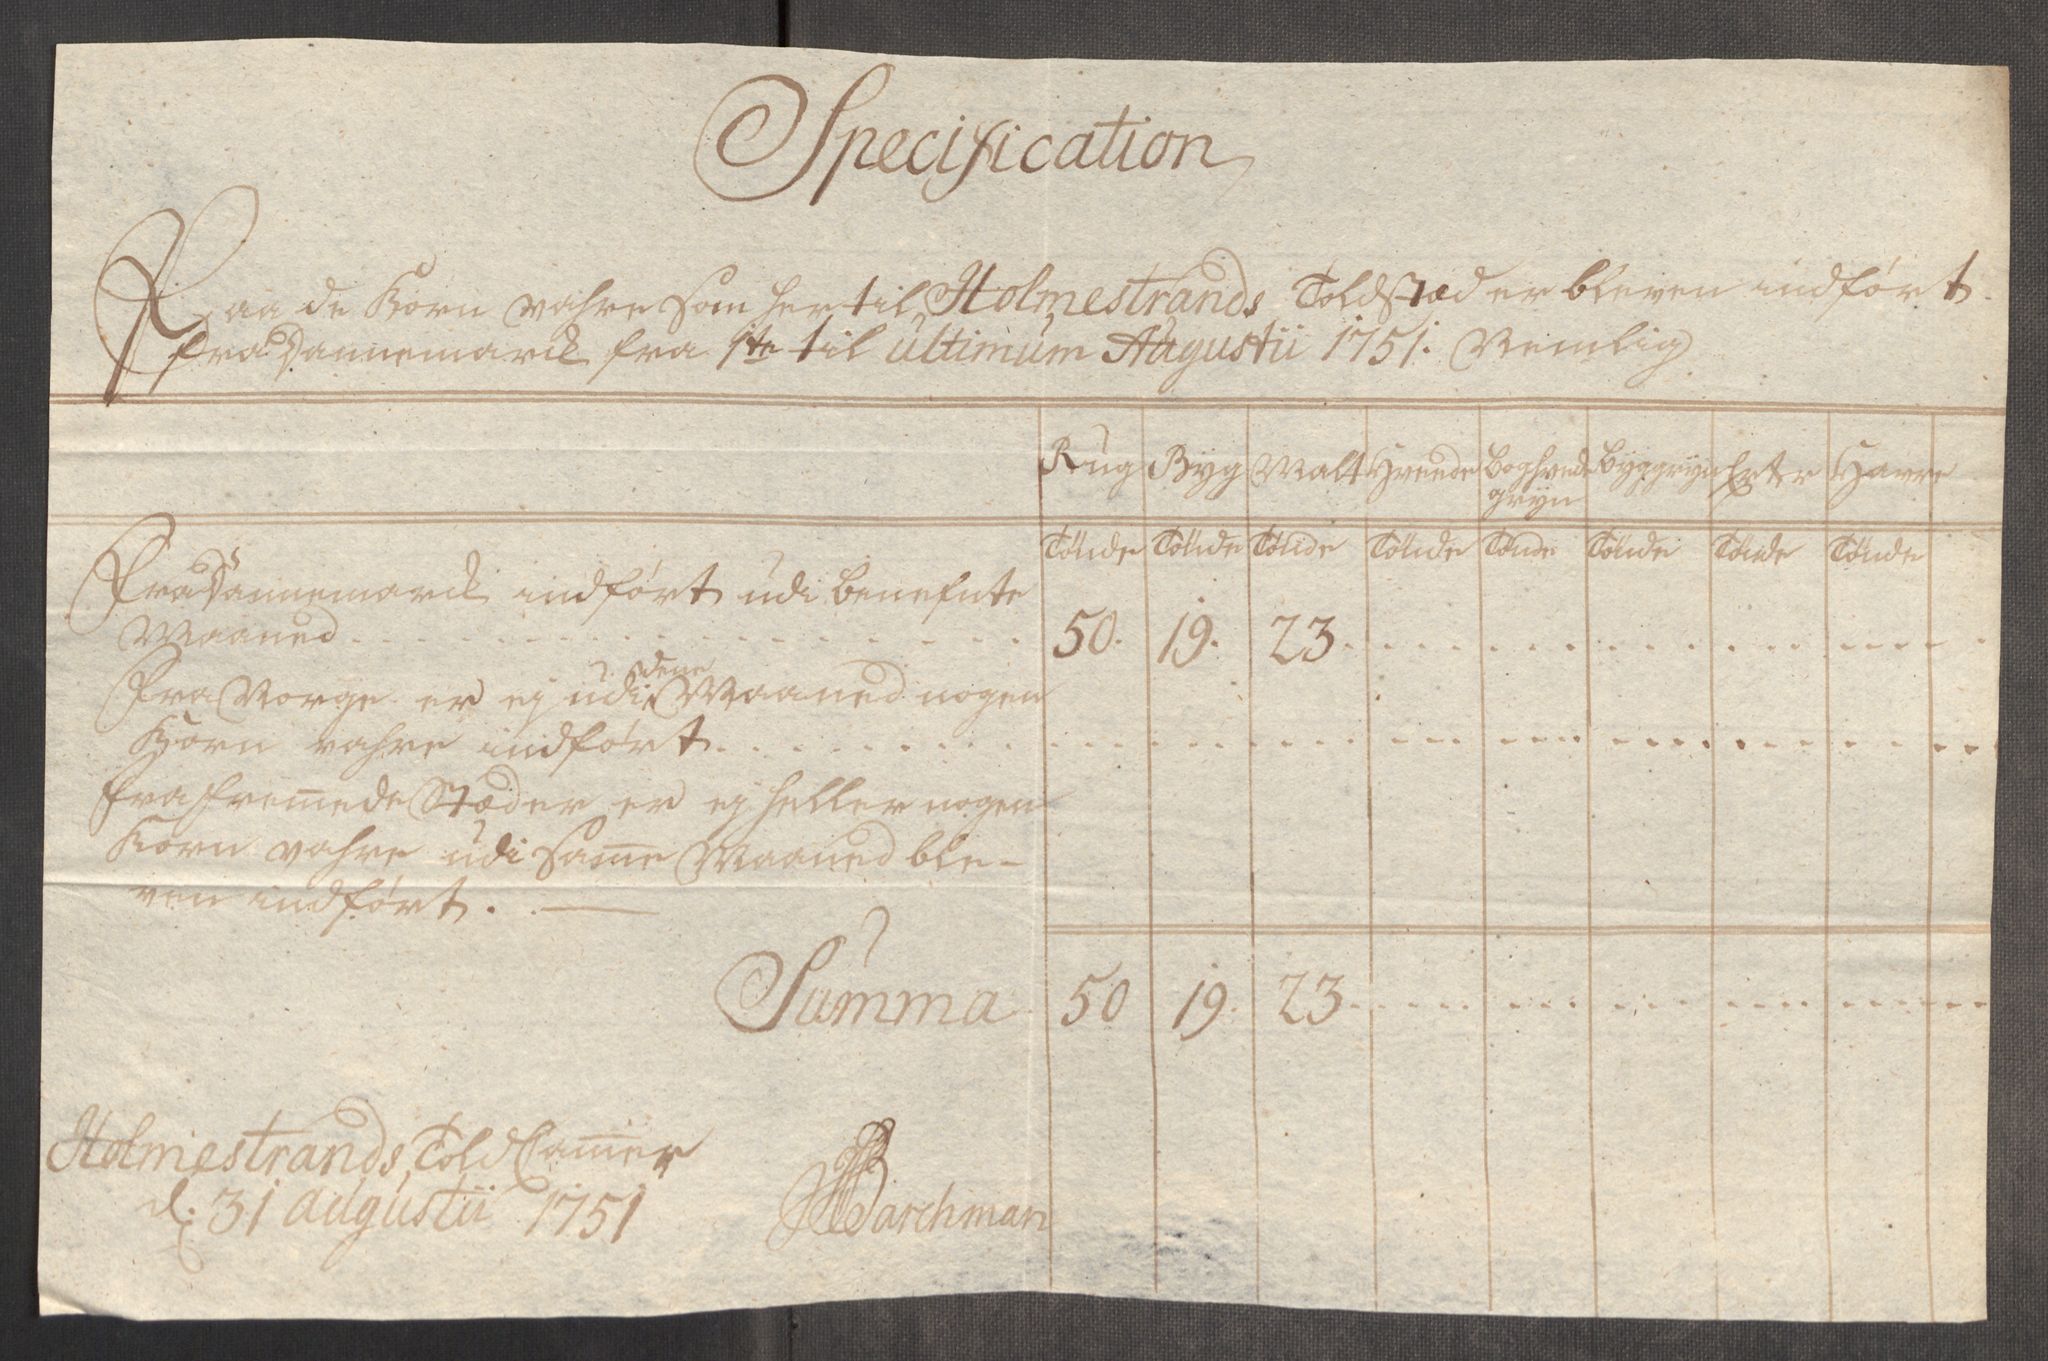 Specification
Paa de Korn vahre som her til Holmestrands Toldstæd er bleven indført
fra Dannemarck fra 1ste til ultimum Augustii 1751. Nemlig
Rug Byg Malt Hvede Boghvede Byggryn Erter Havre
gryn
Tönde Tönde Tönde Tönde Tönde Tönde Tönde Tönde
Fra Dannemarck indført udi benefnte
Maaned 50. 19. 23
Fra Norge er ej udi dene Maaned nogen
Korn vahre indført
fra fremede Stæder er ej heller nogen
Korn vahre udi same Maaned ble-
ven indført.
Summa 50 19. 23
Holmestrands Told Camer
d. 31 augustii 1751 Barchman